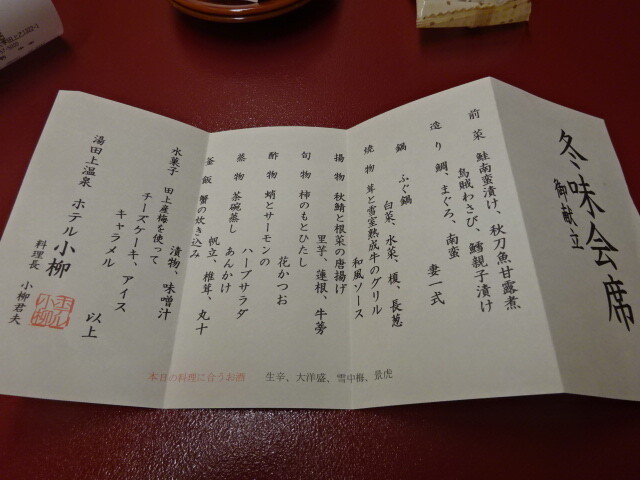 冬味会席
御献立
前菜 鮭南蛮漬け、秋刀魚甘露煮
烏賊わさび、鱈親子漬け
造り 鯛、まぐろ、南蛮 妻一式
鍋 ふぐ鍋
白菜、水菜、榎、長葱
焼物 茸と雪室熟成牛のグリル
和風ソース
揚物 秋鯖と根菜の唐揚げ
里芋、蓮根、牛蒡
旬物 柿のもとひたし
花かつお
酢物 蛸とサーモンの
ハーブサラダ
蒸物 茶碗蒸し あんかけ
帆立、椎茸、丸十
釜飯 蟹の炊き込み
漬物、味噌汁
水菓子 田上産梅を使って
チーズケーキ、アイス
キャラメル
以上
湯田上温泉 ホテル小柳
料理長 小柳君夫
ホテル小柳
本日の料理に合うお酒 生辛、大洋盛、雪中梅、景虎